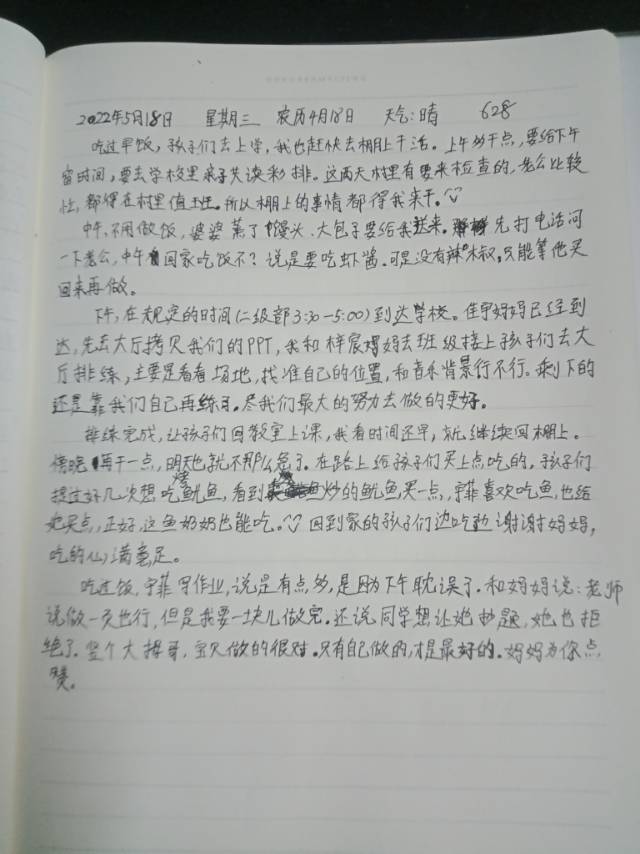 2022年5月18日 星期三 农历4月18日 天气:晴 628
吃过早饭,孩子们去上学,我也赶快去棚上干活。上午多干点,要给下午
留时间,要去学校里亲子共读彩排。这两天村里有要来检查的,老公比较
忙,都得在村里值班。所以棚上的事情都得我来干。
中午,不用做饭,婆婆蒸了馒头、大包子要给我送来。先打电话问
一下老公,中午回家吃饭不?说是要吃虾酱.可是没有辣椒,只能等他买
回来再做。
下午,在规定的时间(二级部3:30-5:00)到达学校。佳宇妈妈已经到
达,先去大厅拷贝我们的PPT,我和梓宸妈妈去班级接上孩子们去大
厅排练,主要是看看场地,找准自己的位置,和音乐背景行不行。剩下的
还是靠我们自己再练习。尽我们最大的努力去做的更好。
排练完成,让孩子们回教室上课,我看时间还早,就继续回棚上。
傍晚再干一点,明天也就不那么急了。在路上给孩子们买上点吃的。孩子们
提过好几次想吃烤鱿鱼,看到炒的鱿鱼买一点,宇菲喜欢吃鱼,也给
她买点,正好,这鱼奶奶也能吃。回到家的孩子们边吃边谢谢妈妈,
吃的心满意足。
吃过饭,宇菲写作业,说是有点多,是因为下午耽误了.和妈妈说:老师
说做一页也行,但是我要一块儿做完.还说同学想让她抄题,她也拒
绝了.竖个大拇哥,宝贝做的很对.只有自己做的,才是最好的.妈妈为你点
赞。